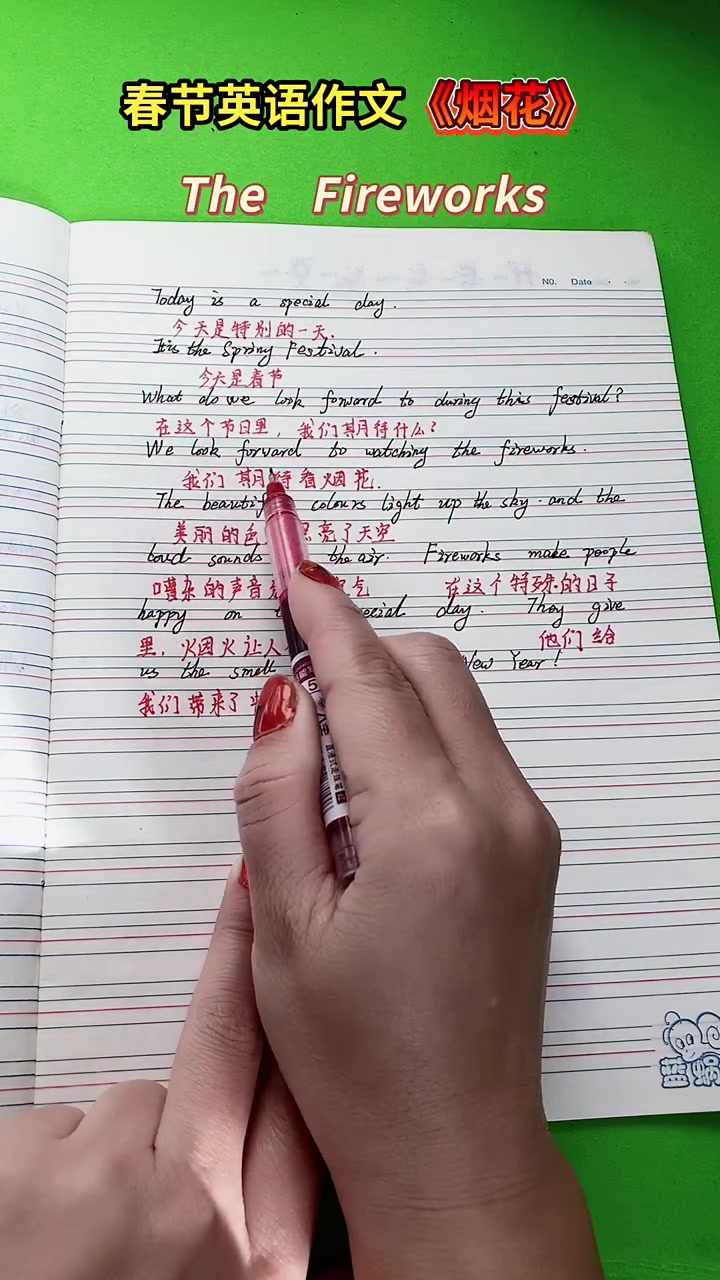 春节英语作文《烟花》
The Fireworks
N0. Date
Today is a special day.
今天是特别的一天.
It is the Spring Festival.
今天是春节
What do we look forward to during this festival?
在这个节日里，我们期待什么？
We look forward to watching the fireworks.
我们期待看烟花.
The beautif colours light up the sky and the
美丽的色 亮了天空
loud sounds the air. Fireworks make people
嘈杂的声音 气 在这个特殊的日子
happy on ecial day. They give
里，火因火让人 他们给
us the smell New Year!
我们带来了
5
蓝蜗